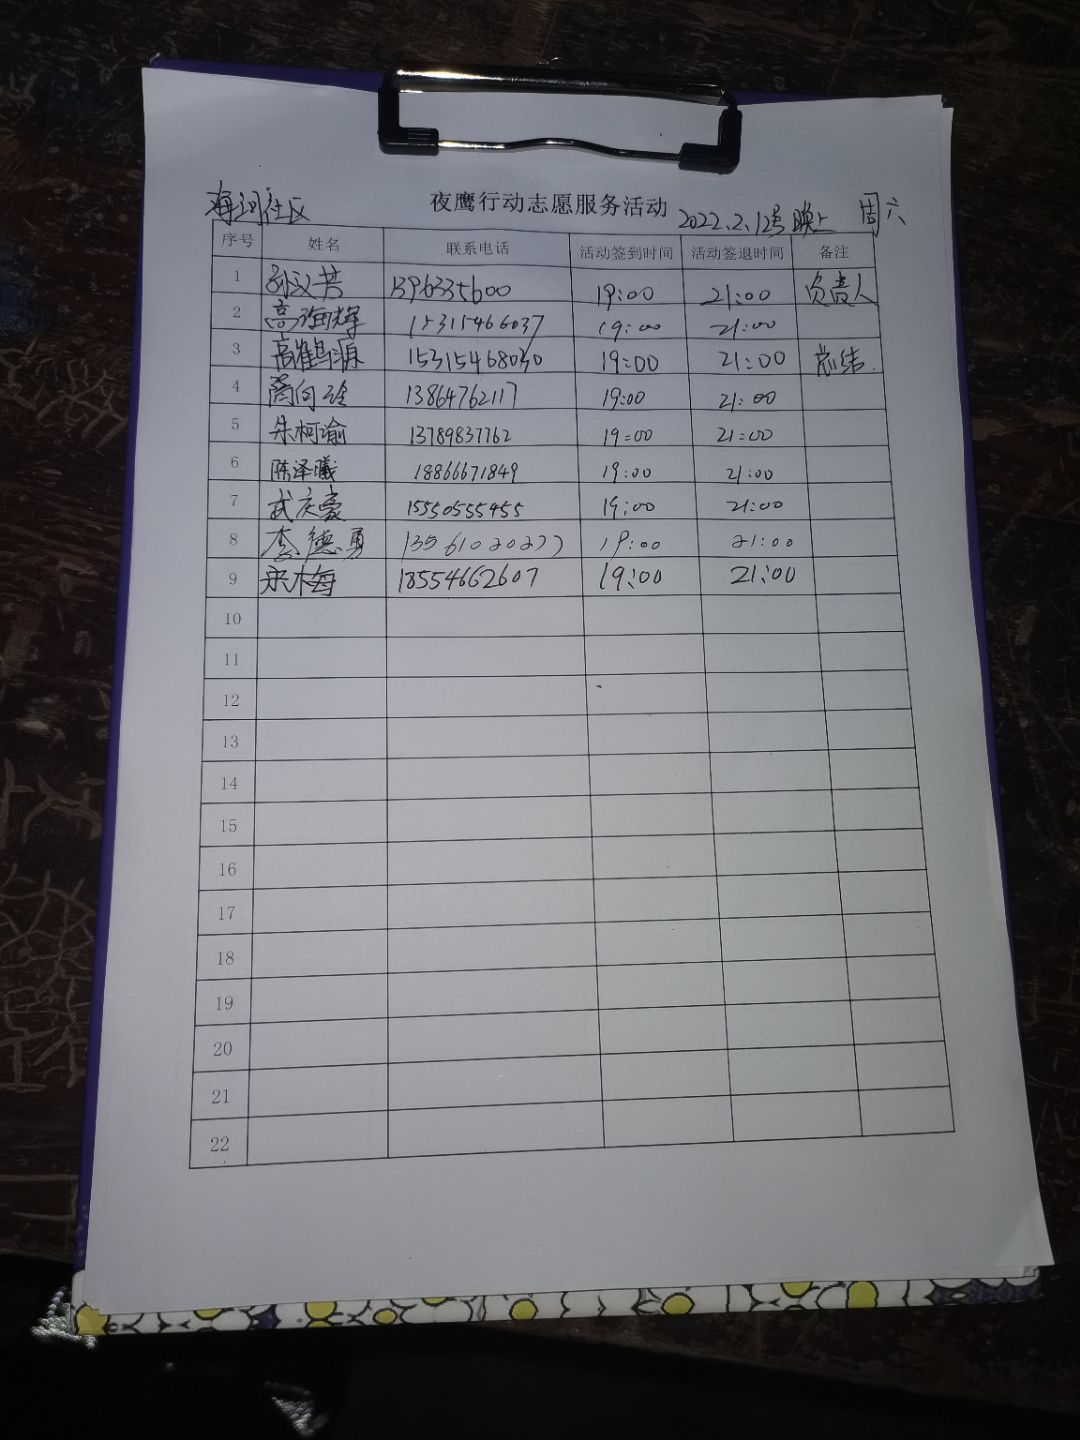 海河社区 夜鹰行动志愿服务活动 2022.2.12号晚上 周六
序号 姓名 联系电话 活动签到时间 活动签退时间 备注
1 孙汉芳 1396335600 19:00 21:00 负责人
2 高海辉 15315466037 19:00 21:00
3 15315468030 19:00 21:00 总结.
4 13864762117 19:00 21:00
5 朱柯谕 13789837762 19:00 21:00
6 陈泽曦 18866671849 19:00 21:00
7 武庆豪 15550555455 19:00 21:00
8 李德勇 13561020277 19:00 21:00
9 18554662607 19:00 21:00
10
11
12
13
14
15
16
17
18
19
20
21
22